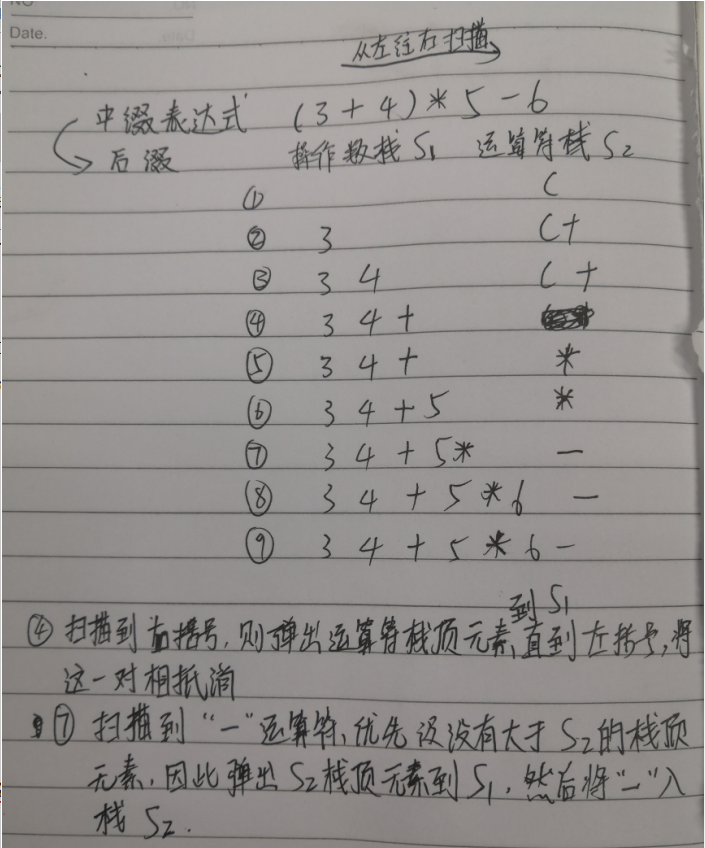 NO
Date.
从左往右扫描
中缀表达式 (3+4)*5-6
后缀 操作数栈S1 运算符栈S2
① (
② 3 (+
③ 3 4 (+
④ 3 4 +
⑤ 3 4 + *
⑥ 3 4 + 5 *
⑦ 3 4 + 5 * -
⑧ 3 4 + 5 * 6 -
⑨ 3 4 + 5 * 6 -
到S1
④ 扫描到右括号,则弹出运算符栈顶元素,直到左括号,将
这一对相抵消
⑦ 扫描到“-”运算符,优先级没有大于S2的栈顶
元素,因此弹出S2栈顶元素到S1,然后将“-”入
栈S2.